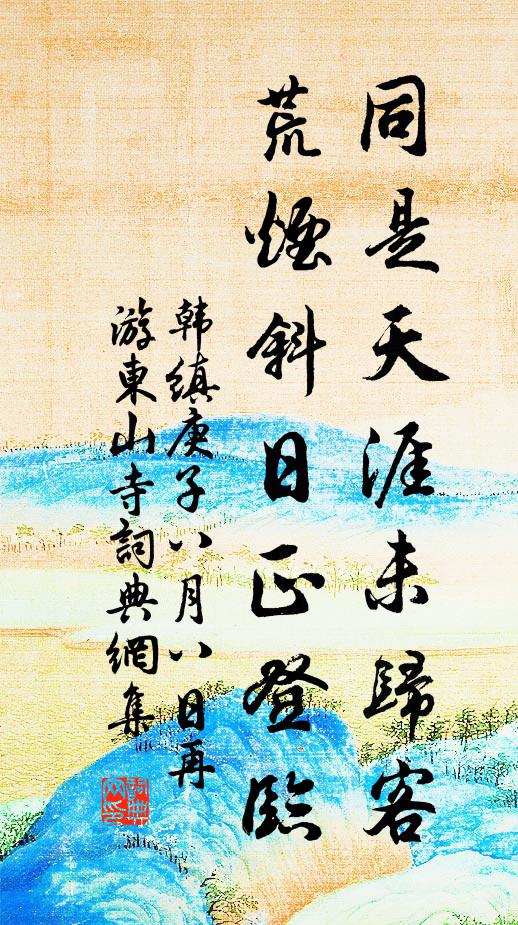 同是天涯未歸客
荒煙斜日正登臨
韩縝庚子八月八日再
游東山寺詞典網集